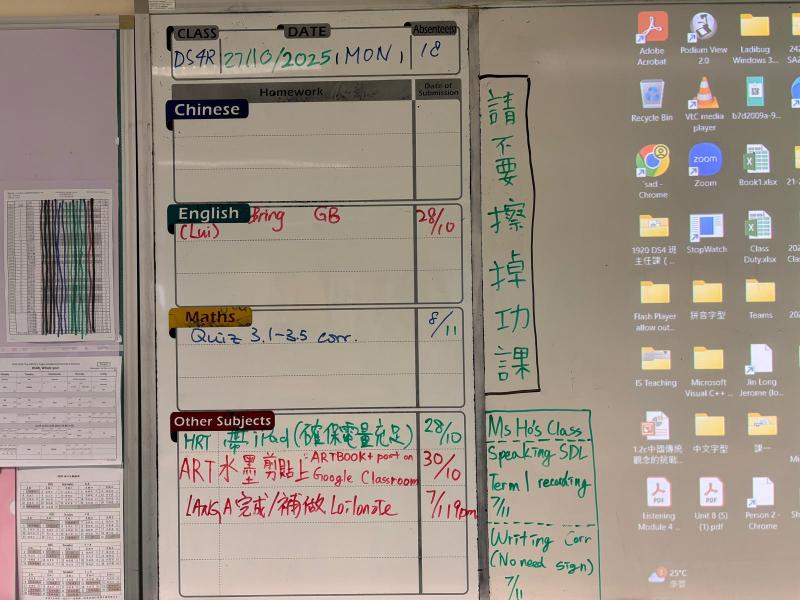 CLASS DATE Absentees
DS4R 27/10/2025, MON, 18
Homework Date of Submission
Chinese
English Bring GB 28/10
(Lui)
Maths
Quiz 3.1-3.5 corr. 8/11
Other Subjects
HRT 帶iPad(確保電量充足) 28/10
ART 水墨剪貼上ARTBOOK+ post on Google Classroom 30/10
完成/補做 Loilonote 7/11 9pm
請不要擦掉功課
Ms Ho's Class
Speaking SDL
Term 1 recording
7/11
Writing Corr
(No need sign)
7/11
Adobe Acrobat
Podium View 2.0
Ladibug Windows 3...
Recycle Bin
VLC media player
b7d2009a-9...
sad - Chrome
zoom
Zoom
Book1.xlsx
1920 DS4 班主任課 (...
StopWatch
Class Duty.xlsx
Flash Player allow out...
拼音字型
Teams
IS Teaching
Microsoft Visual C++ ...
Jin Long Jerome (Io...
1.2c中國傳統觀念的挑戰...
中文字型
課一
Listening Module 4 ...
Unit 8 (S) (1).pdf
Person 2 - Chrome
25°C